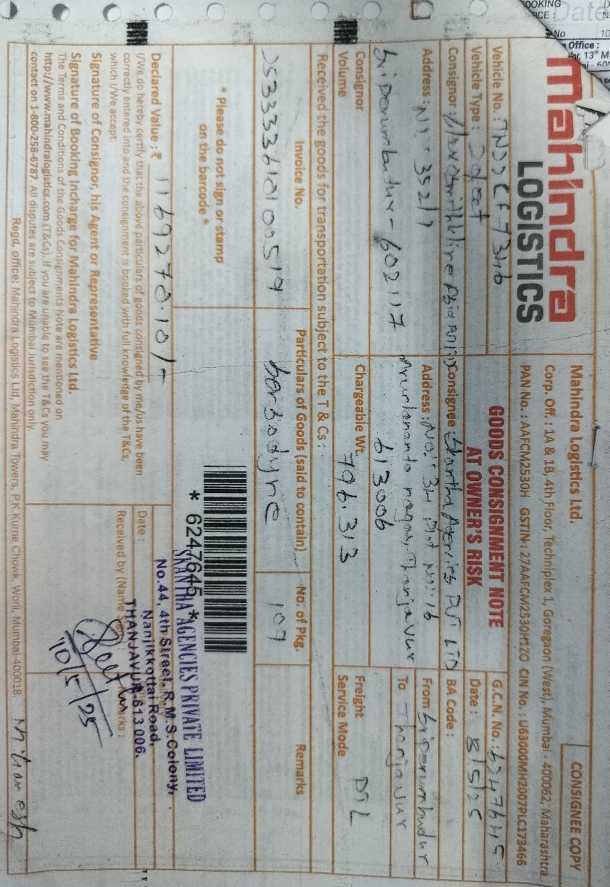 mahindra
LOGISTICS
Mahindra Logistics Ltd.
CONSIGNEE COPY
Corp. Off. : 1A & 1B, 4th Floor, Techniplex 1, Goregaon (West), Mumbai - 400062, Maharashtra
PAN No. : AAFCM2530H GSTIN : 27AAFCM2530H1ZO CIN No. : U63000MH2007PLC173466
GOODS CONSIGNMENT NOTE
AT OWNER'S RISK
G.C.N. No. : 6247645
Vehicle No. :
Date : 8/5/25
Vehicle Type :
BA Code :
Consignor
Consignee : Skantha Agencies Pvt LTD
Address : No:- 352/7
Address : No:- 3H Plot No:-16
From Sriperumbudur
- 602117
nagar, Thanjavur
To Thanjavur
613006
Consignor
Volume
Chargeable Wt.
796.313
Freight
Service Mode
Received the goods for transportation subject to the T & Cs :
Invoice No.
Particulars of Goods (said to contain)
No. of Pkg.
Remarks
Sensodyne
107
* Please do not sign or stamp
on the barcode *
* 6247645 *
SKANTHA AGENCIES PRIVATE LIMITED
No.44, 4th Street, R.M.S.Colony,
Nanjikkottai Road,
THANJAVUR.613 006.
Declared Value : ₹ 1169270.10/-
I/We do hereby certify that the above particulars of goods consigned by me/us have been
correctly entered into and the consignment is booked with full knowledge of the T&Cs,
which I/We accept.
Date :
Received by (Name
10/5/25
Signature of Consignor, his Agent or Representative
Signature of Booking Incharge for Mahindra Logistics Ltd.
The Terms and Conditions of the Goods Consignments Note are mentioned on
http://www.mahindralogistics.com (T&Cs). If you are unable to see the T&Cs you may
contact on 1-800-258-6787. All disputes are subject to Mumbai Jurisdiction only.
Regd. office: Mahindra Logistics Ltd, Mahindra Towers, P.K Kurne Chowk, Worli, Mumbai-400018.